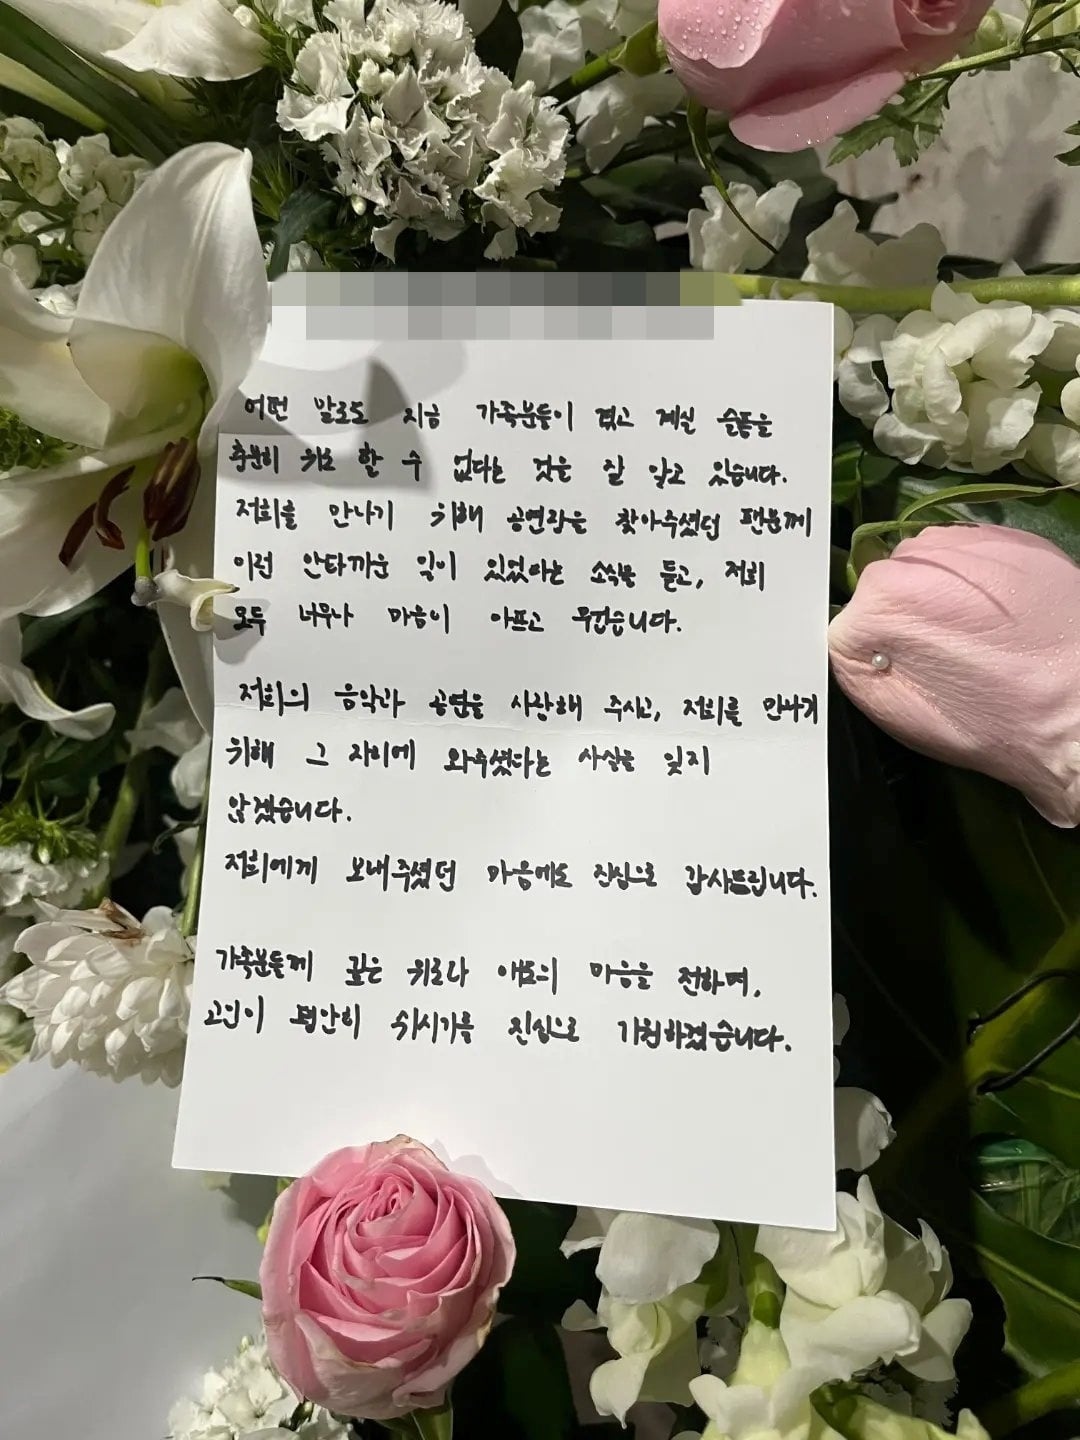 어떤 말로도 지금 가족분들이 겪고 계실 슬픔을
충분히 위로 할 수 없다는 것을 잘 알고 있습니다.
저희를 만나기 위해 공연장을 찾아주셨던 팬분께
이런 안타까운 일이 있었다는 소식을 듣고, 저희
모두 너무나 마음이 아프고 무겁습니다.
저희의 음악과 공연을 사랑해 주시고, 저희를 만나기
위해 그 자리에 와주셨다는 사실을 잊지
않겠습니다.
저희에게 보내주셨던 마음에도 진심으로 감사드립니다.
가족분들께 깊은 위로와 애도의 마음을 전하며,
고인이 편안히 쉬시기를 진심으로 기원하겠습니다.